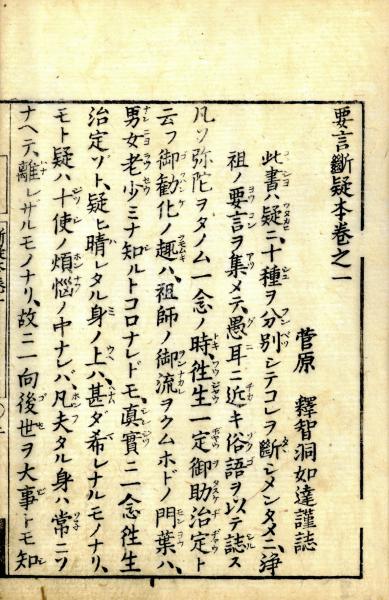 要言斷疑本卷之一
菅原 釋智洞如達謹誌
此書ハ疑ニ、十種ヲ分別シテコレヲ斷シメンタメニ、淨
祖ノ要言ヲ集メテ、愚耳ニ近キ俗語ヲ以テ誌ス
凡ソ弥陀ヲタノム一念ノ時、徃生一定御助治定ト
云フ御勸化ノ趣ハ、祖師ノ御流ヲクムホドノ門葉ハ、
男女老少ミナ知ルトコロナレドモ、眞實ニ一念徃生
治定ゾト、疑ヒ晴レタル身ノ上ハ、甚ダ希レナルモノナリ、
モト疑ハ十使ノ煩惱ノ中ナレバ、凡夫タル身ハ常ニソ
ナヘテ離レザルモノナリ、故ニ一向後世ヲ大事トモ知